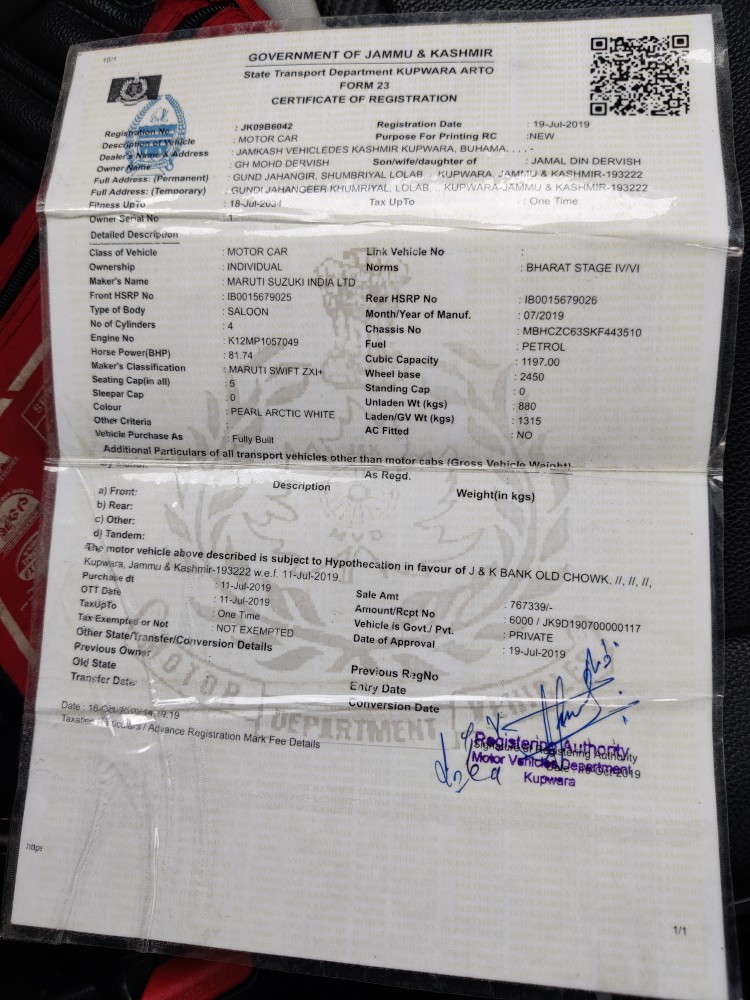 10/1
GOVERNMENT OF JAMMU & KASHMIR
State Transport Department KUPWARA ARTO
FORM 23
CERTIFICATE OF REGISTRATION
Registration No : JK09B6042 Registration Date : 19-Jul-2019
Description of Vehicle : MOTOR CAR Purpose For Printing RC :NEW
Dealer's Name & Address : JAMKASH VEHICLEDES KASHMIR KUPWARA, BUHAMA, . . . -
Owner Name : GH MOHD DERVISH Son/wife/daughter of : JAMAL DIN DERVISH
Full Address: (Permanent) : GUND JAHANGIR, SHUMBRIYAL LOLAB, , KUPWARA, JAMMU & KASHMIR-193222
Full Address: (Temporary) : GUNDI JAHANGEER KHUMRIYAL, LOLAB, , KUPWARA-JAMMU & KASHMIR-193222
Fitness UpTo : 18-Jul-2034 Tax UpTo : One Time
Owner Serial No : 1
Detailed Description
Class of Vehicle : MOTOR CAR Link Vehicle No :
Ownership : INDIVIDUAL Norms : BHARAT STAGE IV/VI
Maker's Name : MARUTI SUZUKI INDIA LTD
Front HSRP No : IB0015679025 Rear HSRP No : IB0015679026
Type of Body : SALOON Month/Year of Manuf. : 07/2019
No of Cylinders : 4 Chassis No : MBHCZC63SKF443510
Engine No : K12MP1057049 Fuel : PETROL
Horse Power(BHP) : 81.74 Cubic Capacity : 1197.00
Maker's Classification : MARUTI SWIFT ZXI+ Wheel base : 2450
Seating Cap(in all) : 5 Standing Cap : 0
Sleepar Cap : 0 Unladen Wt (kgs) : 880
Colour : PEARL ARCTIC WHITE Laden/GV Wt (kgs) : 1315
Other Criteria : AC Fitted : NO
Vehicle Purchase As : Fully Built
Additional Particulars of all transport vehicles other than motor cabs (Gross Vehicle Weight)
As Regd.
Description Weight(in kgs)
a) Front:
b) Rear:
c) Other:
d) Tandem:
The motor vehicle above described is subject to Hypothecation in favour of J & K BANK OLD CHOWK, //, //, //,
Kupwara, Jammu & Kashmir-193222 w.e.f. 11-Jul-2019.
Purchase dt : 11-Jul-2019 Sale Amt : 767339/-
OTT Date : 11-Jul-2019 Amount/Rcpt No : 6000 / JK9D190700000117
TaxUpTo : One Time Vehicle is Govt./ Pvt. : PRIVATE
Tax Exempted or Not : NOT EXEMPTED Date of Approval : 19-Jul-2019
Other State/Transfer/Conversion Details
Previous Owner : Previous RegNo
Old State Entry Date
Transfer Date Conversion Date
MOTOR VEHICLES DEPARTMENT
Taxation Particulars / Advance Registration Mark Fee Details
Registering Authority
Signature of Registering Authority
Motor Vehicles Department
Kupwara
http:
1/1